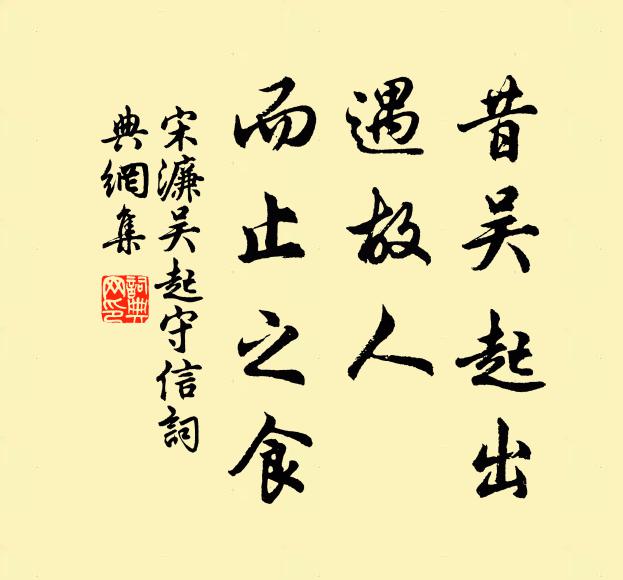 昔吴起出
遇故人
而止之食
宋濂吴起守信詞
典網集
詞典
网印